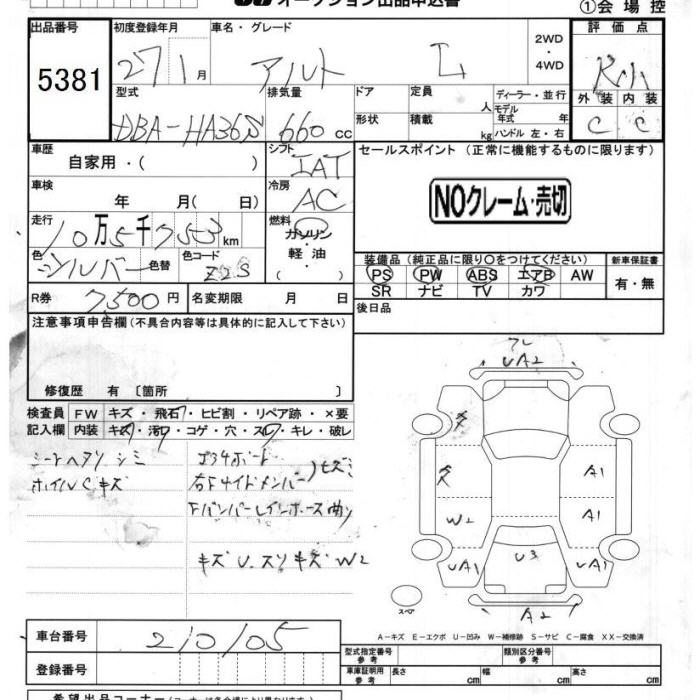 オークション出品申込書
①会場控
出品番号 初度登録年月 車名・グレード 評価点
5381 27 1月 アルト L 2WD・4WD
型式 排気量 ドア 定員 人 ディーラー・並行 外装 内装
DBA-HA36S 660cc 形状 積載 kg モデル年式 年 C C
ハンドル 左・右
車歴 シフト セールスポイント (正常に機能するものに限ります)
自家用・( ) IAT
車検 冷房
年 月( 日) AC NOクレーム・売切
走行 燃料
10万5千753km ガソリン
軽・油
色 色替 色コード 装備品 (純正品に限り○をつけてください) 新車保証書
シルバー Z2S PS PW ABS エアB AW 有・無
SR ナビ TV カワ
R券 7500円 名変期限 月 日 後日品
注意事項申告欄 (不具合内容等は具体的に記入して下さい)
修復歴 有 〔箇所 〕
検査員 FW キズ・飛石・ヒビ割・リペア跡・×要
記入欄 内装 キズ・汚・コゲ・穴・スレ・キレ・破レ
シートヘタリ シミ
ホイルCキズ
右Fサイドメンバー
キズU.スリキズW2
UA2
A1
A1
W2
UA1 U3 UA1
スペ A2
A-キズ E-エクボ U-凹み W-補修跡 S-サビ C-腐食 XX-交換済
車台番号 210105
型式指定番号 参考 類別区分番号 参考
登録番号
車庫証明用 参考 長さ cm 幅 cm 高さ cm
希望出品コーナー